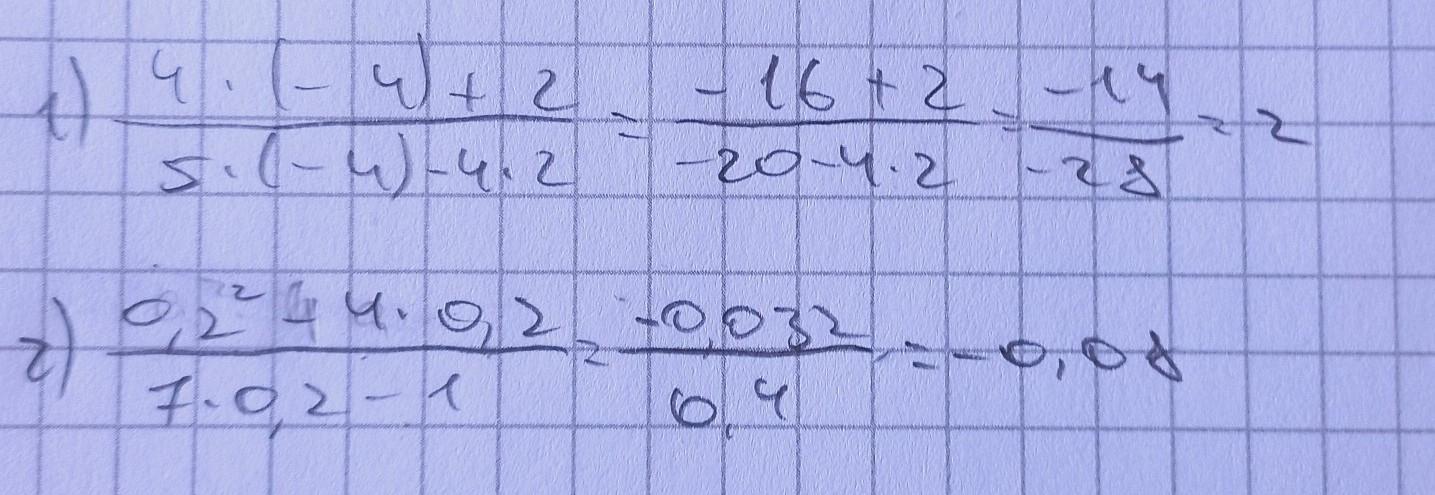 1) (4 · (-4) + 2) / (5 · (-4) - 4 · 2) = (-16 + 2) / (-20 - 4 · 2) = (-14) / (-28) = 2
2) (0,2² - 4 · 0,2) / (7 · 0,2 - 1) = (-0,032) / (0,4) = -0,08